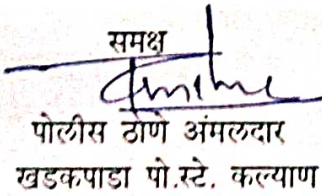 समक्ष
पोलीस ठाणे अंमलदार
खडकपाडा पो.स्टे. कल्याण